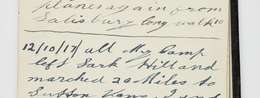 plane again from
Salisbury long walk 10
12/10/17 all My Camp
left Park Hitland
marched 20 Miles to
Sutton Vany. I and